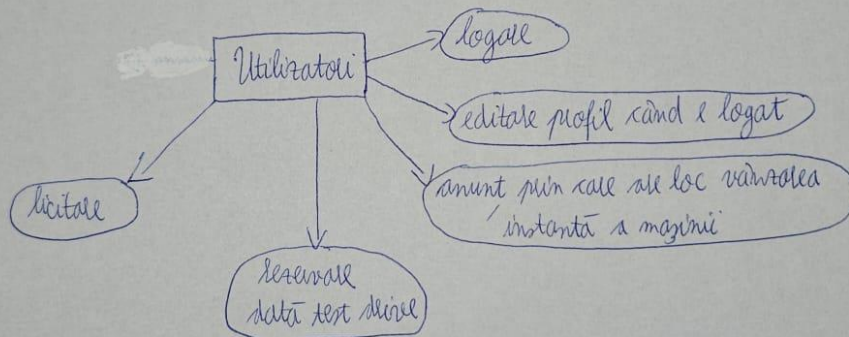 logare
Utilizatori
editare profil când e logat
anunț prin care are loc vânzarea
instantă a mașinii
licitare
rezervare
dată test drive